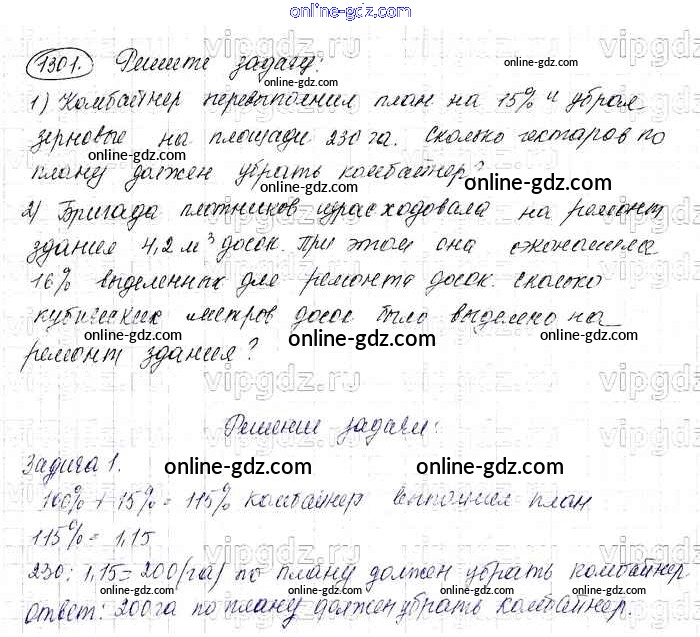 online-gdz.com
1301. Решите задачу:
online-gdz.com
1) Комбайнер перевыполнил план на 15% и убрал
зерновые на площади 230 га. Сколько гектаров по
online-gdz.com
плану должен убрать комбайнер?
online-gdz.com
2) Бригада плотников израсходовала на ремонт
здания 4,2 м³ досок. При этом она сэкономила
16% выделенных для ремонта досок. Сколько
кубических метров досок было выделено на
online-gdz.com online-gdz.com
ремонт здания?
Решение задачи:
Задача 1.
online-gdz.com online-gdz.com
100% + 15% = 115% комбайнер выполнил план
115% = 1,15
230 : 1,15 = 200 (га) по плану должен убрать комбайнер
online-gdz.com online-gdz.com
Ответ: 200 га по плану должен убрать комбайнер.